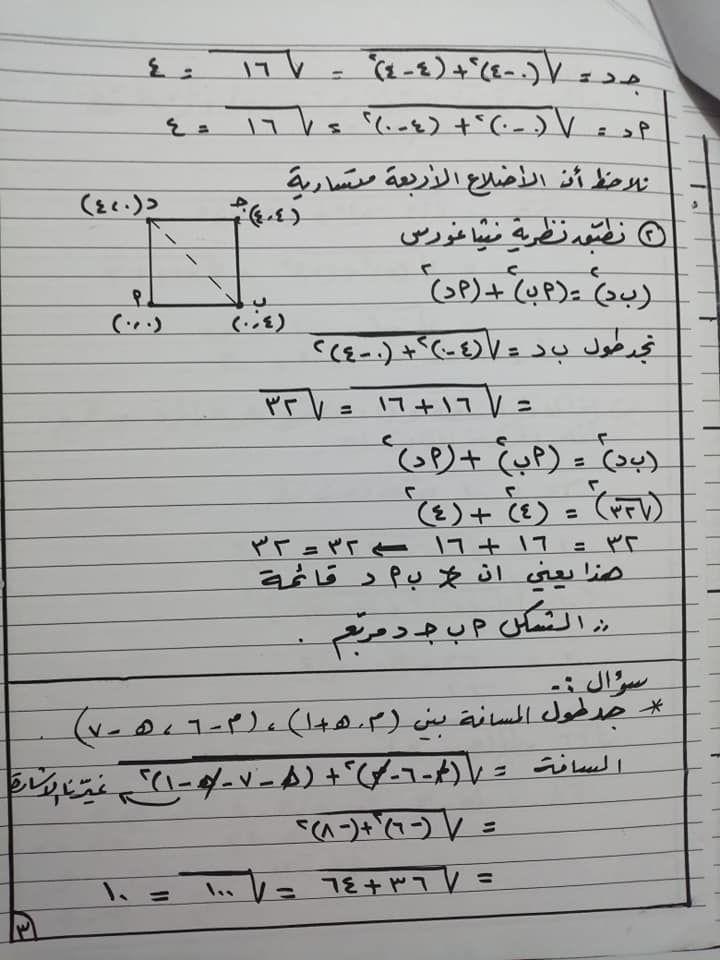 جـ د = √(٠-٤)² + (٤-٤)² = √١٦ = ٤
م د = √(٠-٠)² + (٤-٠)² = √١٦ = ٤
نلاحظ أن الأضلاع الأربعة متساوية
② نطبق نظرية فيثاغورس
(ب د)² = (م ب)² + (م د)²
نجد طول ب د = √(٤-٠)² + (٠-٤)²
= √١٦+١٦ = √٣٢
(ب د)² = (م ب)² + (م د)²
(√٣٢)² = (٤)² + (٤)²
٣٢ = ١٦ + ١٦ ← ٣٢ = ٣٢
هذا يعني ان ∢ ب م د قائمة
∴ الشكل م ب جـ د مربع .
د(٤،٠)
جـ
(٤،٤)
م
ب
(٠،٠)
(٠،٤)
سؤال :-
* جد طول المسافة بين (م، هـ+١) ، (م-٦ ، هـ-٧) .
المسافة = √(م-٦-م)² + (هـ-٧-هـ-١)² غيّرنا الاشارة
= √(-٦)² + (-٨)²
= √٣٦+٦٤ = √١٠٠ = ١٠
٣